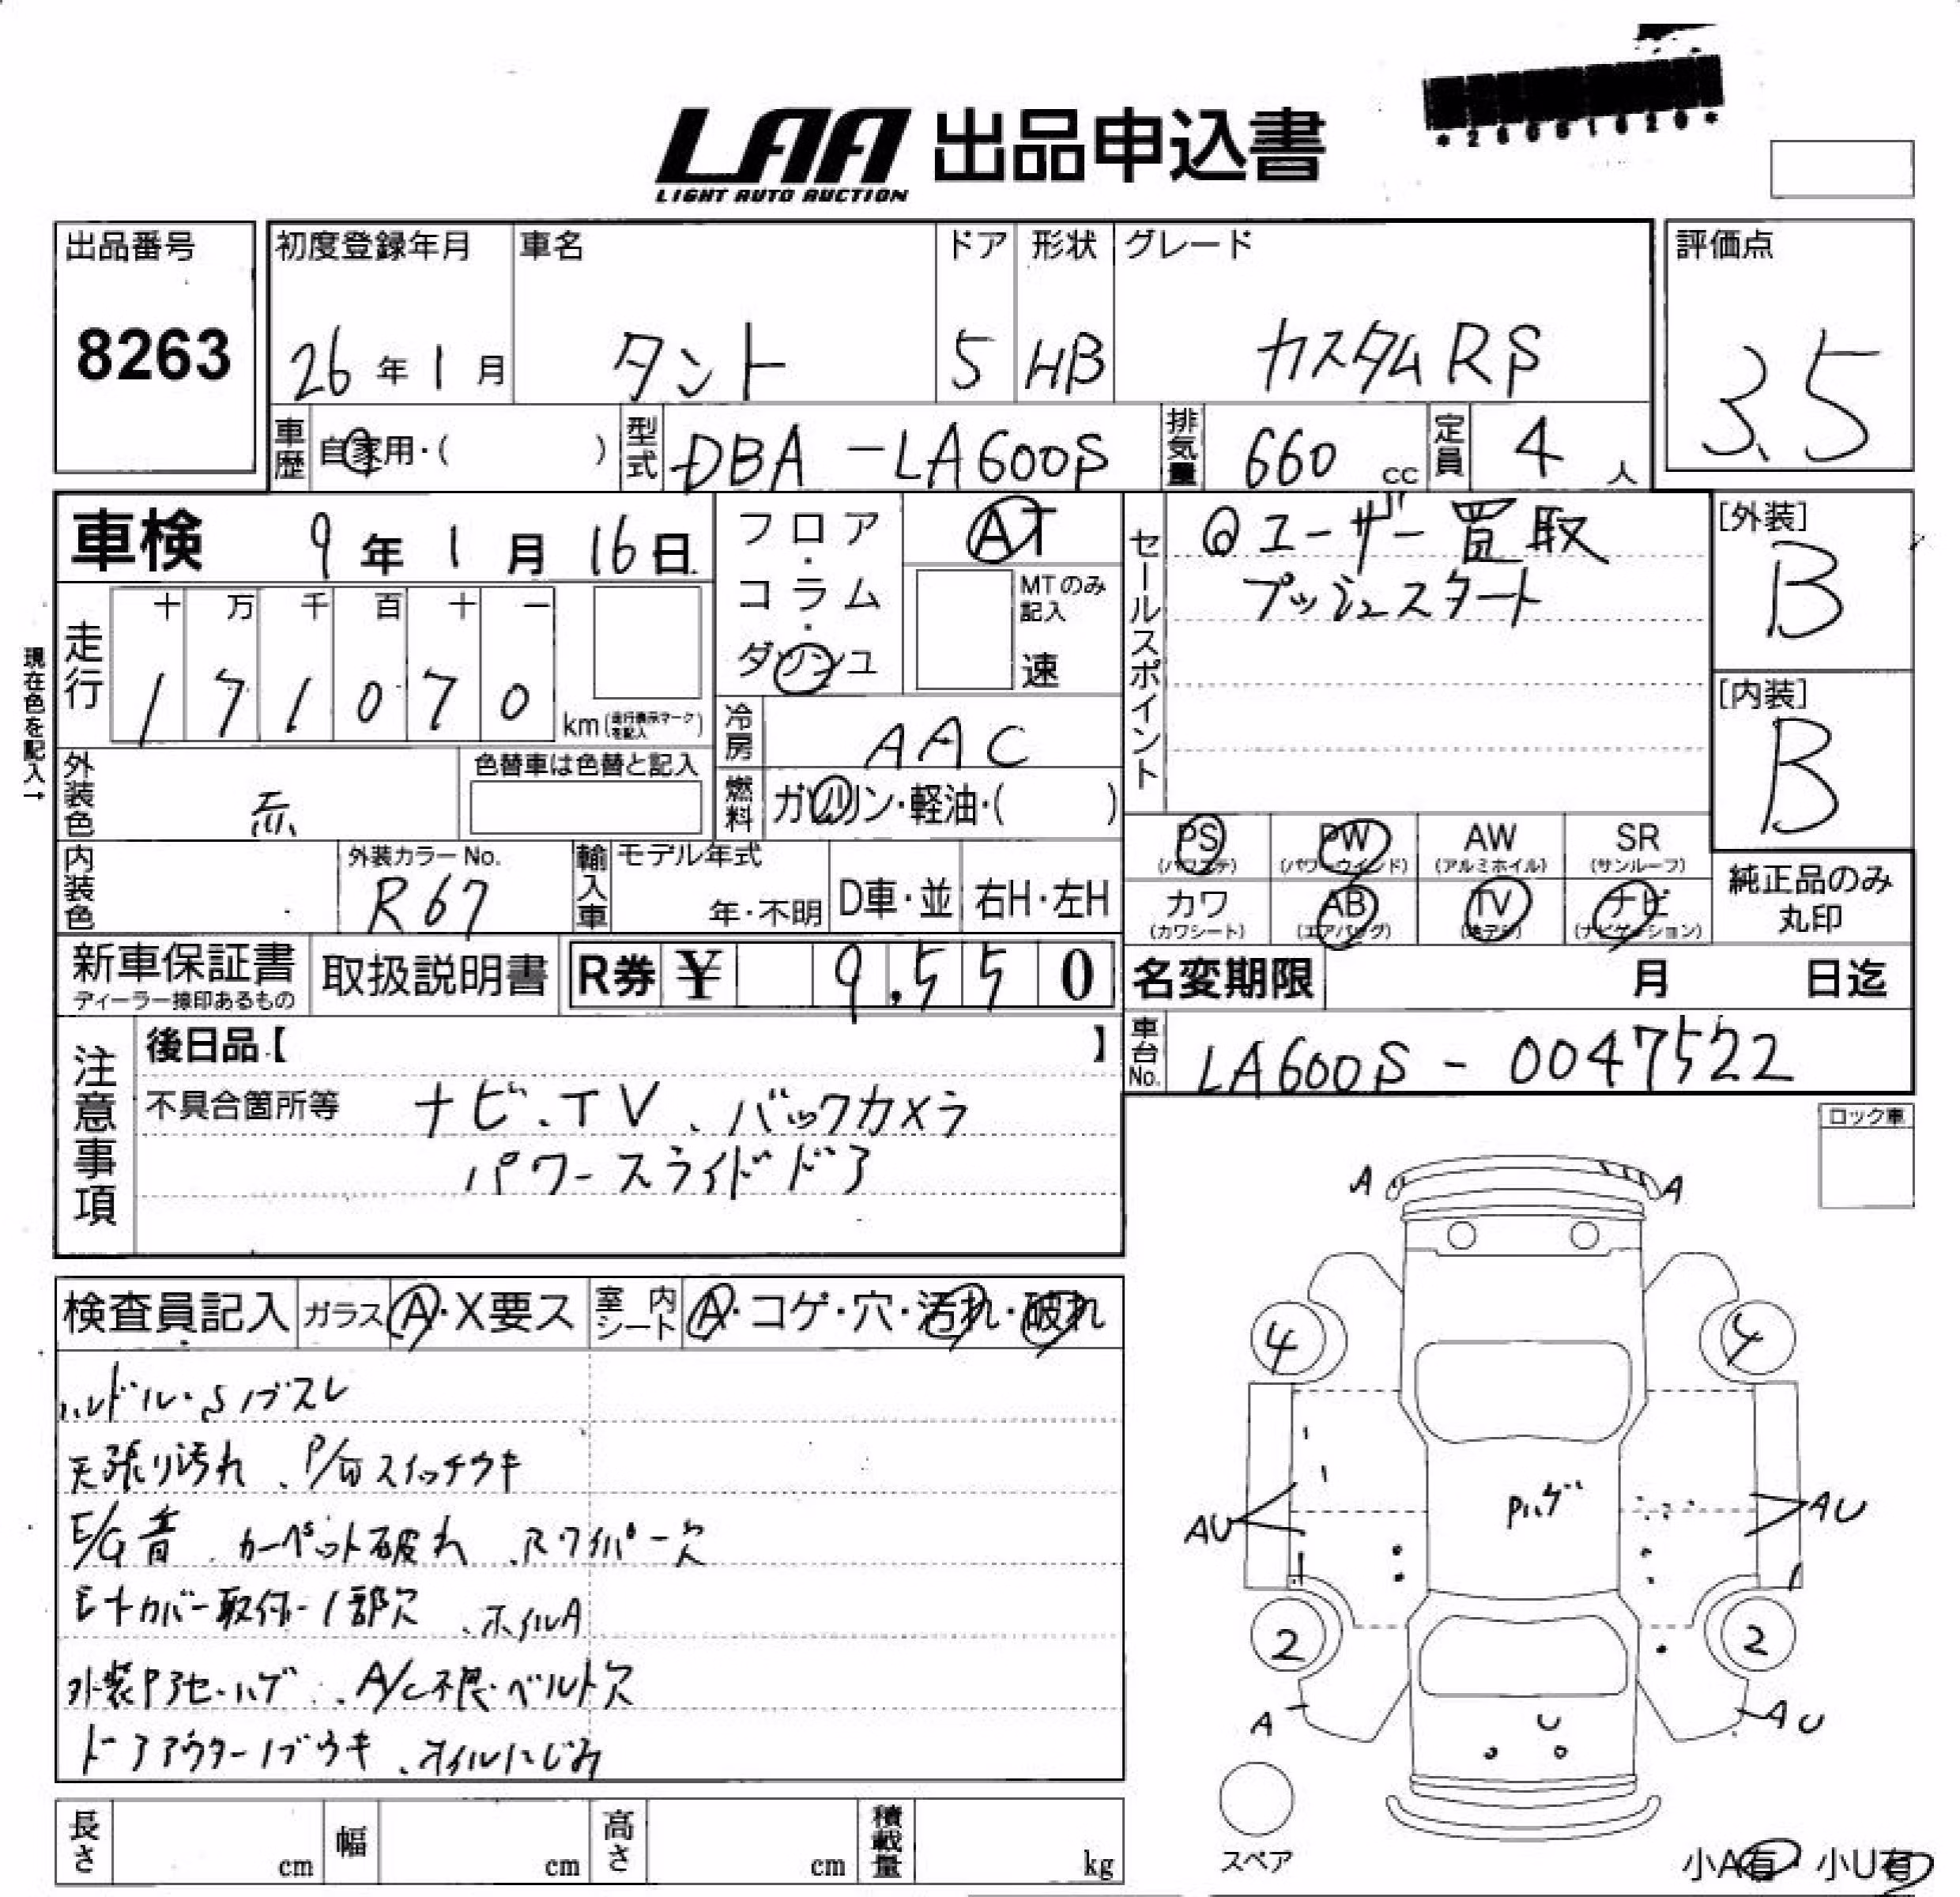 *26091620*
LAA 出品申込書
LIGHT AUTO AUCTION
出品番号
8263
初度登録年月
26年1月
車名
タント
ドア
5
形状
HB
グレード
カスタムRS
評価点
3.5
車歴
自家用・( )
型式
DBA-LA600S
排気量
660cc
定員
4人
車検 9年1月16日
走行
十 万 千 百 十 一
1 7 1 0 7 0
km(走行表示マークを記入)
現在色を記入→
外装色
赤
色替車は色替と記入
内装色
外装カラーNo.
R67
輸入車
モデル年式
年・不明
D車・並
右H・左H
フロア・コラム・ダッシュ
AT
MTのみ記入
速
冷房
AAC
燃料
ガソリン・軽油・( )
セールスポイント
◎ユーザー買取
プッシュスタート
[外装]
B
[内装]
B
PS (パワステ)
PW (パワーウィンド)
AW (アルミホイル)
SR (サンルーフ)
カワ (カワシート)
AB (エアバッグ)
TV (テレビ)
ナビ (ナビゲーション)
純正品のみ丸印
新車保証書
ディーラー捺印あるもの
取扱説明書
R券 ¥ 9,550
名変期限 月 日迄
車台No.
LA600S-0047522
注意事項
後日品【 】
不具合箇所等 ナビ、TV、バックカメラ
パワースライドドア
ロック車
検査員記入
ガラス A・X要ス
室内シート A・コゲ・穴・汚れ・破れ
ハンドル・Sノブスレ
天張り汚れ、P/Wスイッチウキ
E/G音、カーペット破れ、Rワイパー欠
モトカバー取付一部欠、ホイルA
外装Pアセ・ハゲ、A/C不良・ベルト欠
ドアアウターノブウキ、オイルにじみ
A A
4 4
AU AU
Pハゲ
2 2
A AU
U
スペア
小A有・小U有
長さ cm
幅 cm
高さ cm
積載量 kg